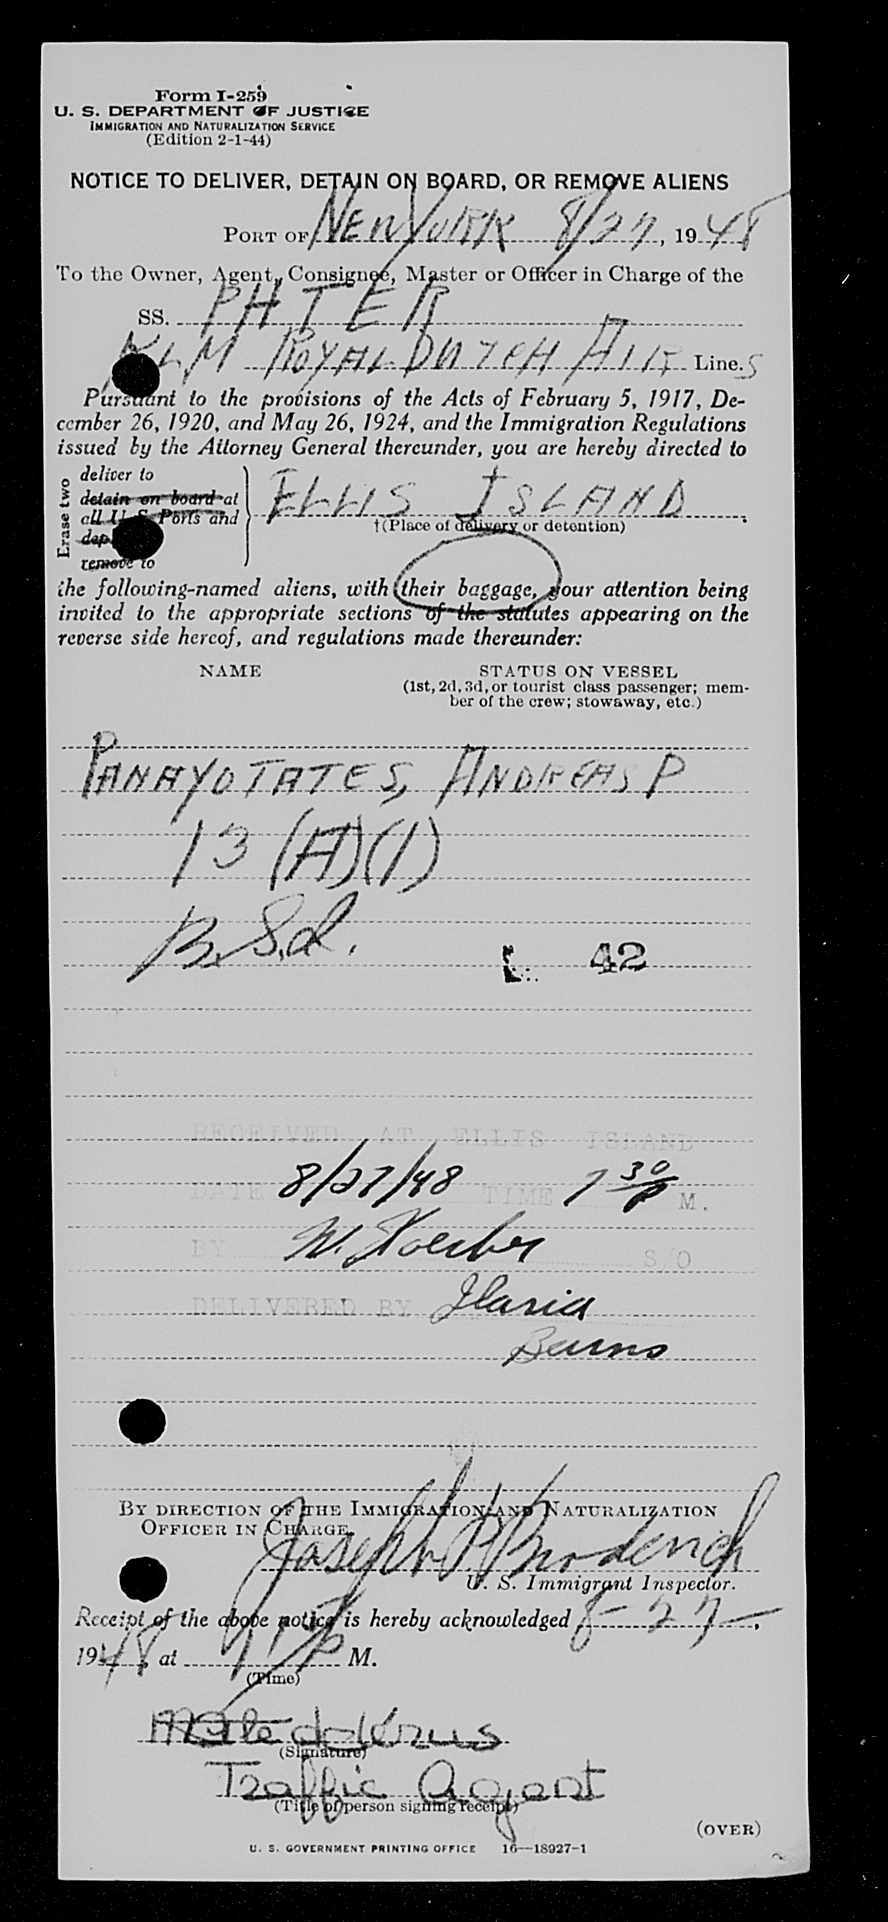 Form I-259
U. S. DEPARTMENT OF JUSTICE
IMMIGRATION AND NATURALIZATION SERVICE
(Edition 2-1-44)
NOTICE TO DELIVER, DETAIN ON BOARD, OR REMOVE ALIENS
PORT OF NEW YORK 8/27, 1948
To the Owner, Agent, Consignee, Master or Officer in Charge of the
SS. PH TER
KLM ROYAL DUTCH AIR Line.S
Pursuant to the provisions of the Acts of February 5, 1917, De-
cember 26, 1920, and May 26, 1924, and the Immigration Regulations
issued by the Attorney General thereunder, you are hereby directed to
Erase two
deliver to
detain on board at
all U S Ports and
remove to
ELLIS ISLAND
†(Place of delivery or detention)
the following-named aliens, with their baggage, your attention being
invited to the appropriate sections of the statutes appearing on the
reverse side hereof, and regulations made thereunder:
NAME STATUS ON VESSEL
(1st, 2d, 3d, or tourist class passenger; mem-
ber of the crew; stowaway, etc.)
PANAYOTATES, ANDREAS P
13 (A)(1)
B.S.I.
42
RECEIVED AT ELLIS ISLAND
DATE 8/27/48 TIME 7 30 P M.
BY W. Koerber S/O
DELIVERED BY Ilaria
Burns
BY DIRECTION OF THE IMMIGRATION AND NATURALIZATION
OFFICER IN CHARGE
Joseph P Broderick
U. S. Immigrant Inspector.
Receipt of the above notice is hereby acknowledged 8-27-,
1948, at M.
(Time)
(Signature)
Traffic Agent
(Title of person signing receipt)
(OVER)
U. S. GOVERNMENT PRINTING OFFICE 16—18927-1